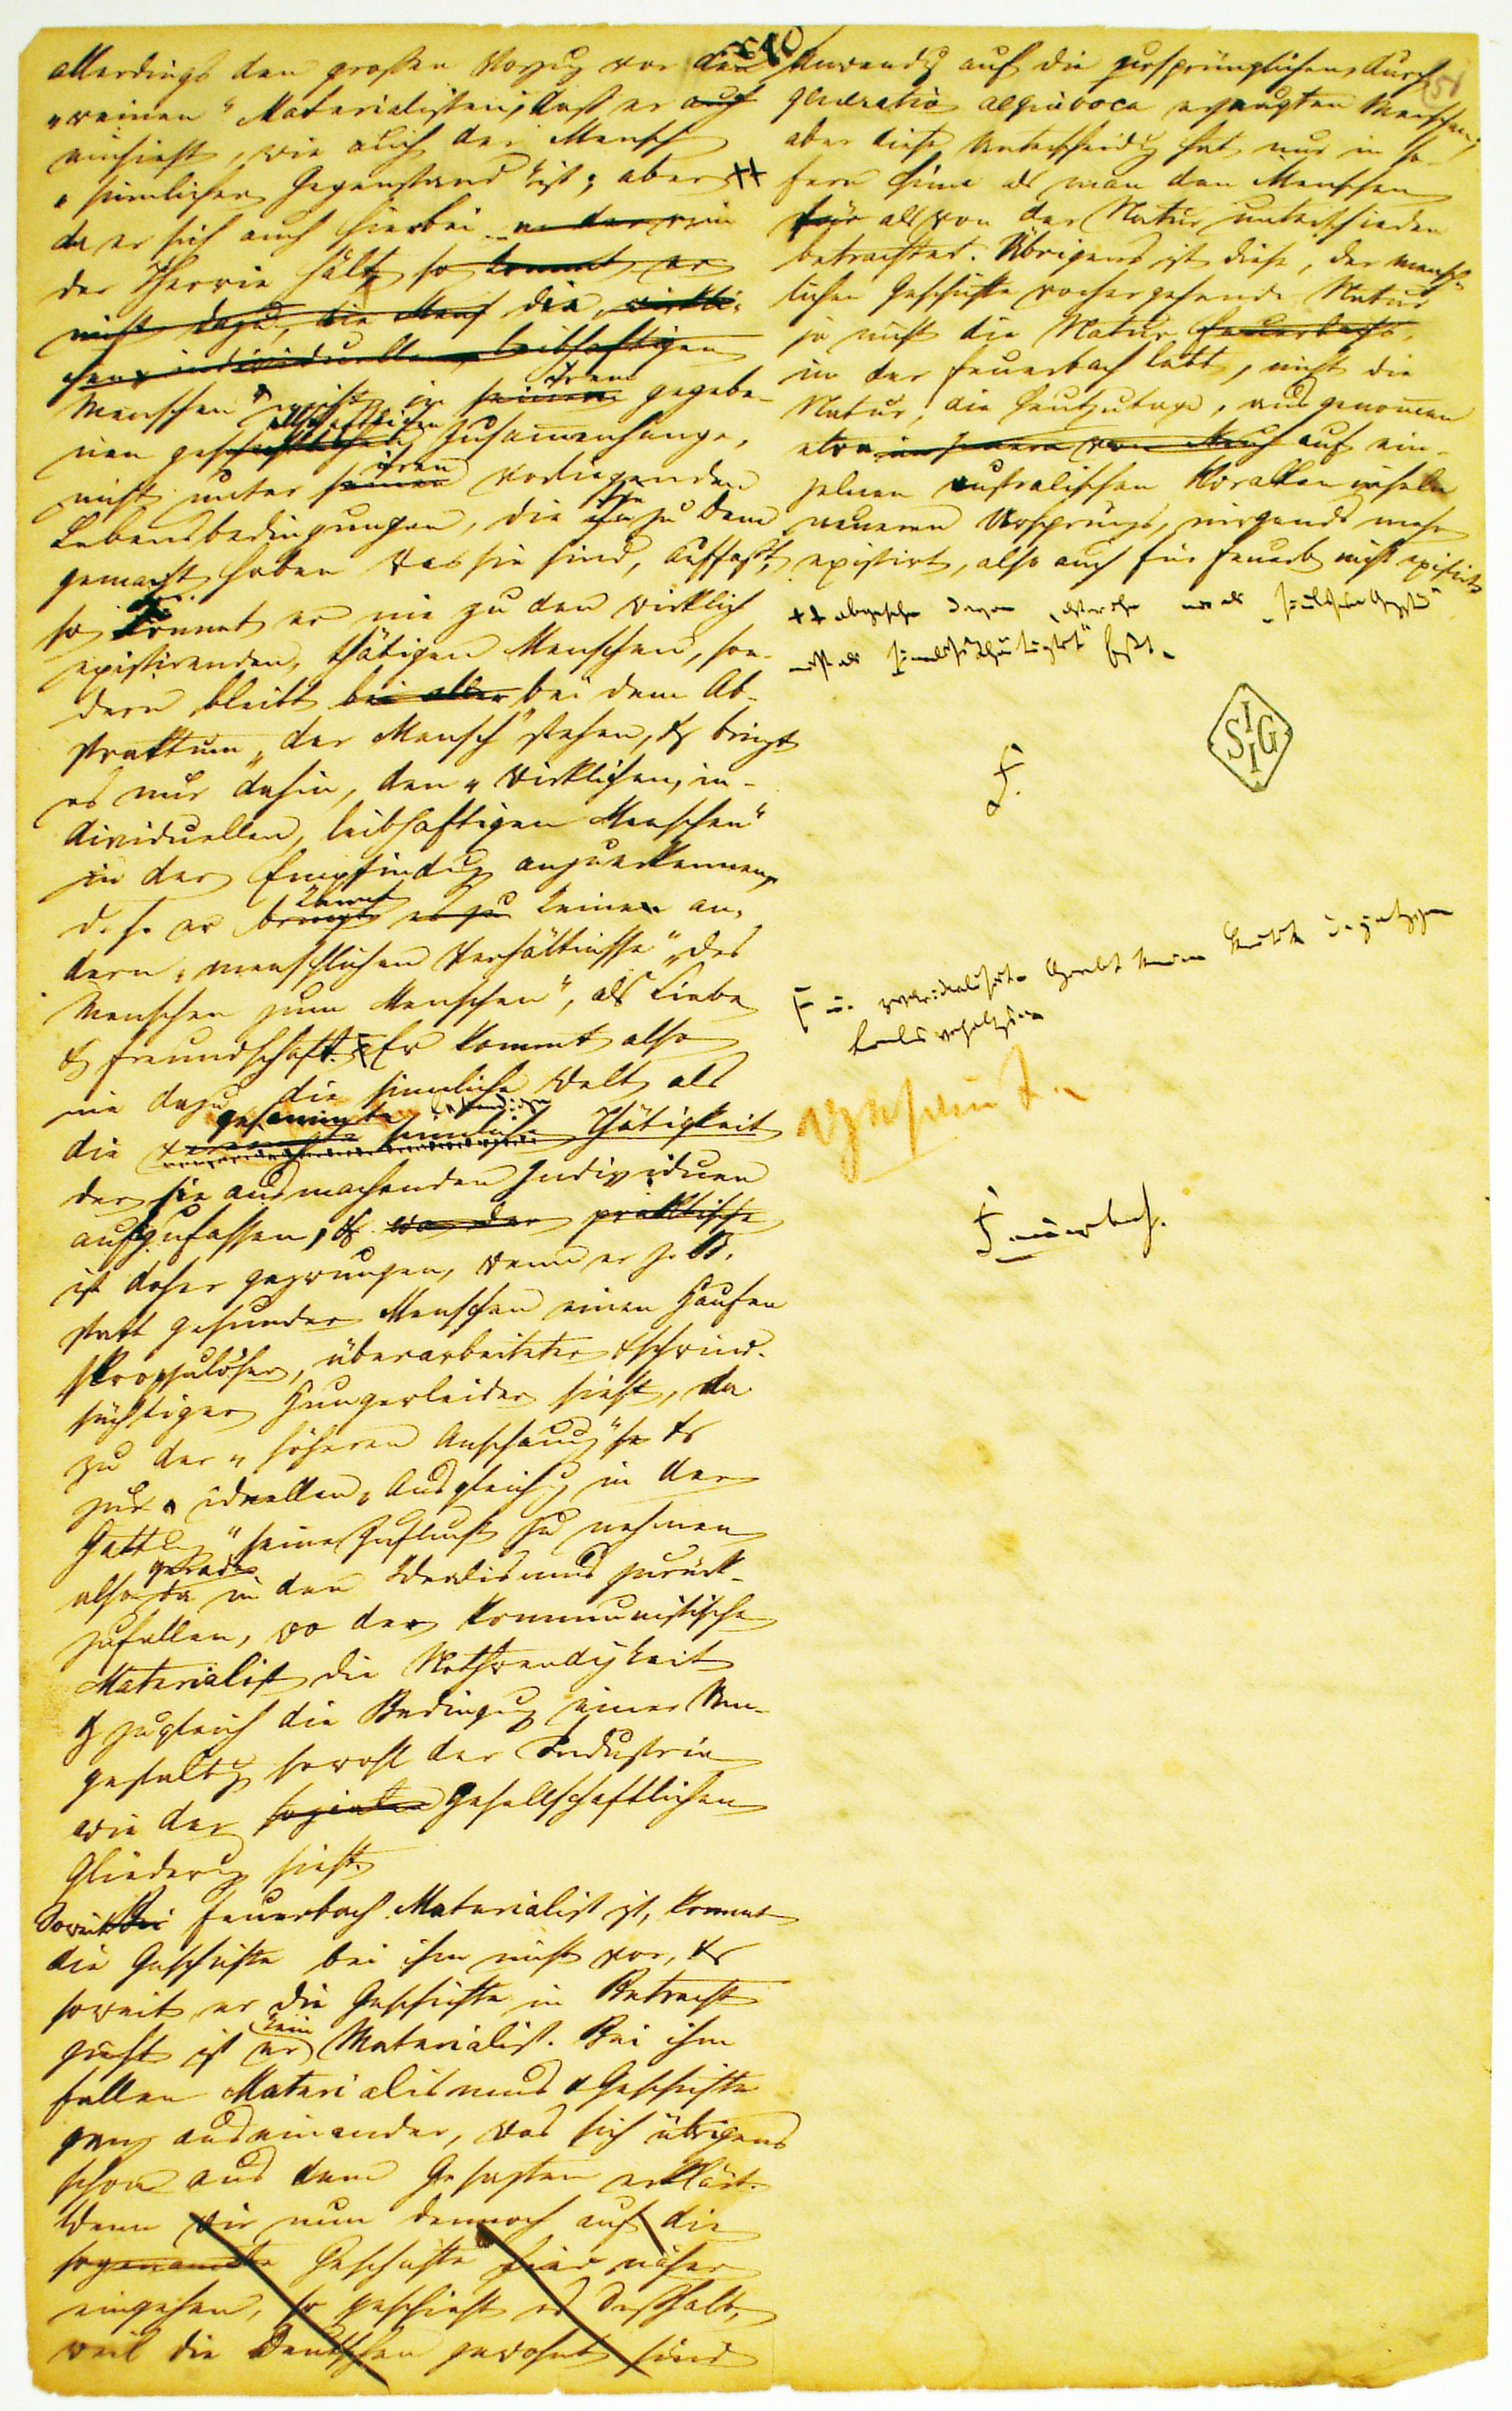 allerdings den großen Vorzug vor den
„reinen“ Materialisten, daß er
einsieht, wie auch der Mensch
„sinnlicher Gegenstand“ ist; aber ++
da er sich auch hierbei in der
der Theorie hält, so kommt er
nicht dazu, die Mensch die wirkli-
chen individuellen, leibhaftigen
Menschen nicht in seinem ihrem gegebe-
nen geschichtlichen gesellschaftlichen Zusammenhange,
nicht unter seinen ihren vorliegenden
Lebensbedingungen, die sie zu Dem
gemacht haben was sie sind, auffaßt,
so kommt er nie zu den wirklich
existirenden, thätigen Menschen, son-
dern bleibt bei aller bei dem Ab-
straktum „der Mensch“ stehen, & bringt
es nur dahin, den „wirklichen, in-
dividuellen, leibhaftigen Menschen“
in der Empfindung anzuerkennen,
d. h. er bringt es zu kennt keine an-
dern „menschlichen Verhältnisse“ „des
Menschen zum Menschen“, als Liebe
& Freundschaft. Er kommt also
nie dazu, die sinnliche Welt als
die gesammte lebendige sinnliche Thätigkeit
der sie ausmachenden Individuen
aufzufassen, & wo der praktische
ist daher gezwungen, wenn er z. B.
statt gesunder Menschen einen Haufen
skrophulöser, überarbeiteter & schwind-
süchtiger Hungerleider sieht, da
zu der „höheren Anschauung“ &
zur ideellen „Ausgleichung in der
Gattung“ seine Zuflucht zu nehmen
also gerade da in den Idealismus zurück-
zufallen, wo der kommunistische
Materialist die Nothwendigkeit
& zugleich die Bedingung einer Um-
gestaltung sowohl der Industrie
wie der sozialen gesellschaftlichen
Gliederung sieht.
Soweit Bei Feuerbach Materialist ist, kommt
die Geschichte bei ihm nicht vor, &
soweit er die Geschichte in Betracht
zieht ist er kein Materialist. Bei ihm
fallen Materialismus & Geschichte
ganz auseinander, was sich übrigens
schon aus dem Gesagten erklärt.
Wenn wir nun dennoch auf die
sogenannte Geschichte hier näher
eingehen, so geschieht es deßhalb,
weil die Deutschen gewohnt sind
Anwendung auf die ursprünglichen, durch
generatio aequivoca erzeugten Menschen;
aber diese Unterscheidung hat nur in so-
fern Sinn als man den Menschen
für als von der Natur unterschieden
betrachtet. Übrigens ist diese, der mensch-
lichen Geschichte vorhergehende Natur
ja nicht die Natur Feuerbachs,
in der Feuerbach lebt, nicht die
Natur, die heutzutage, ausgenommen
etwa auf ein-
zelnen australischen Koralleninseln
neueren Ursprungs, nirgends mehr
existirt, also auch für Feuerb. nicht existirt
++ abgesehn davon, daß er ihn nur als „sinnlichen Gegenstand“
nicht als „sinnliche Thätigkeit“ faßt.
F.
SIIG
F u. zwar idealisirt. Giebt keine Kritik der jetzigen
Lebensverhältnisse
Feuerbach.
51